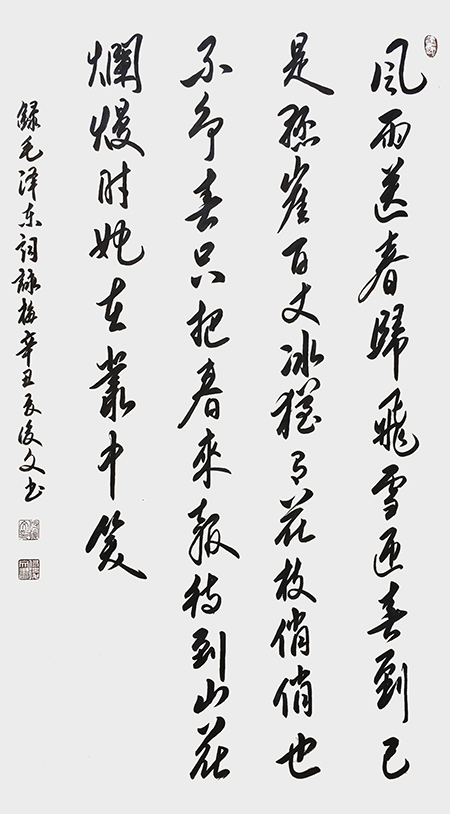 风雨送春歸飛雪迎春到已
是懸崖百丈冰猶有花枝俏俏也
不争春只把春來報待到山花
爛熳时她在叢中笑
録毛泽东詞詠梅辛丑夏俊文书